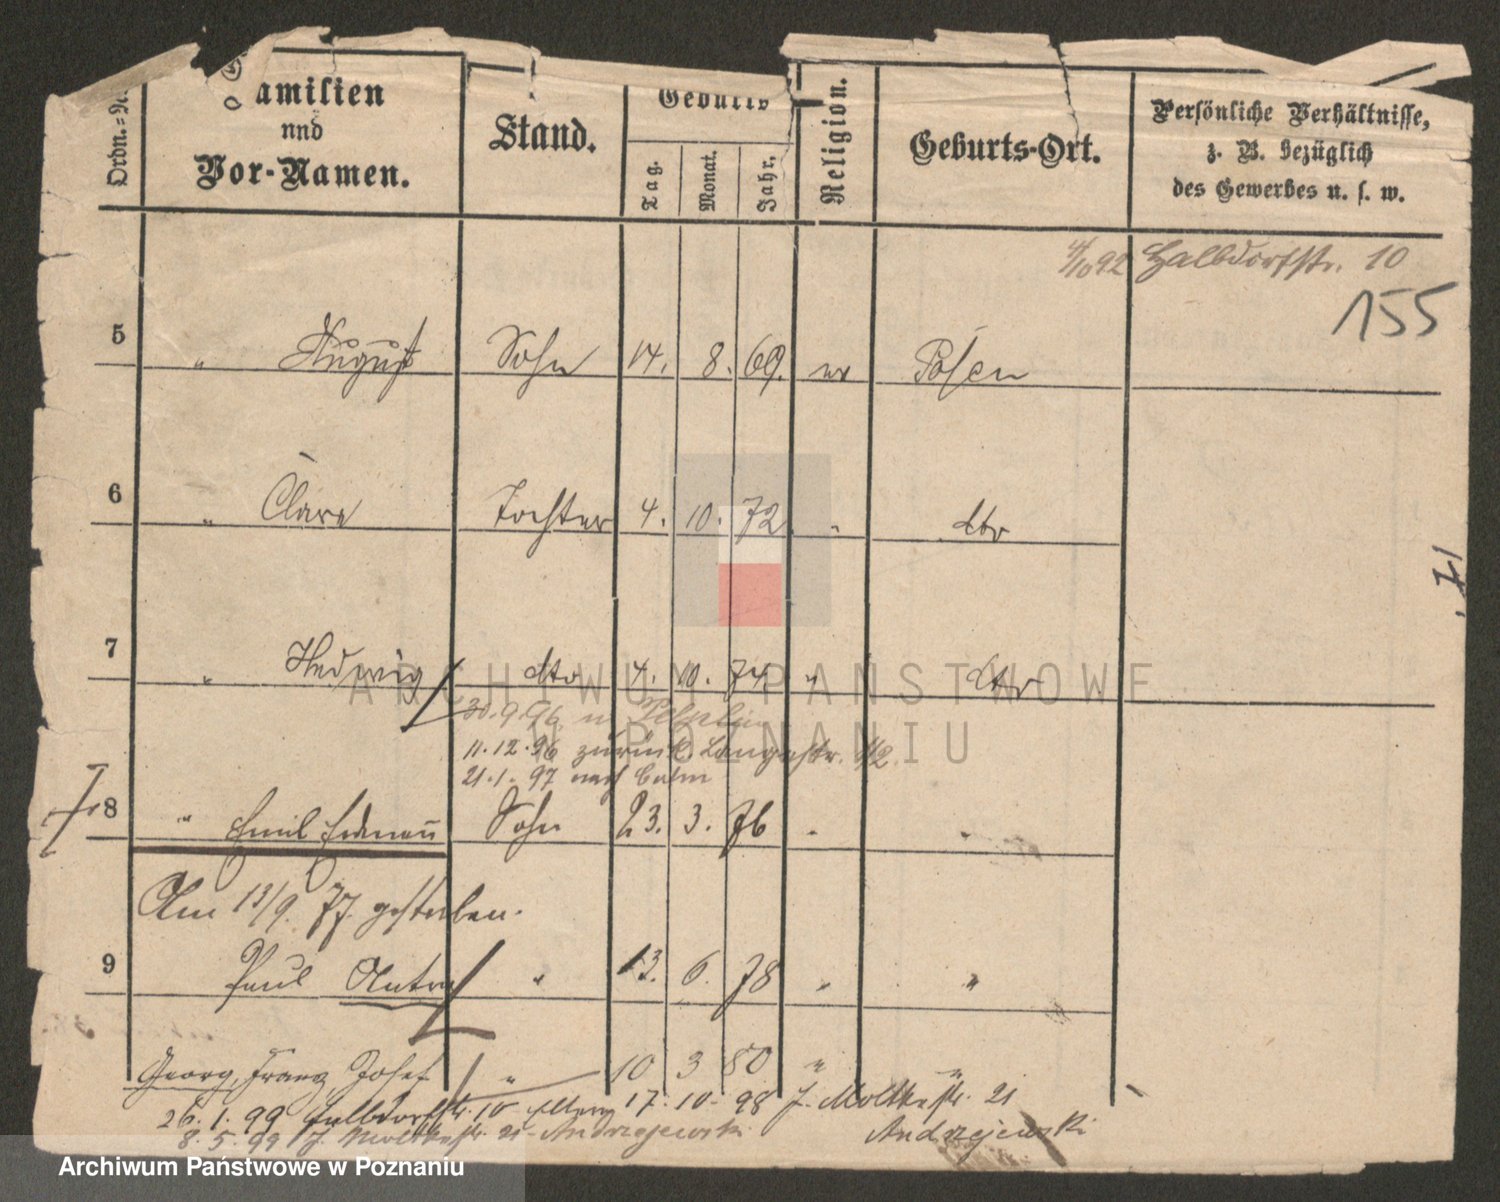 Ordn.=N.
Familien
und
Vor-Namen.
Stand.
Geburts
Tag.
Monat.
Jahr.
Religion.
Geburts-Ort.
Persönliche Verhältnisse,
z. B. bezüglich
des Gewerbes u. s. w.
4/10 92 Halbdorfstr. 10
155
5 " August Sohn 14. 8. 69. Posen
6 " Clara Tochter 4. 10. 72 " dto
7 " Hedwig dto 4. 10. 74. " dto
30.9.96 n. Pelplin
11.12.96 zurück Langestr.
21.1.97 nach
8 " Emil Sohn 23. 3. 76 " "
Am 13/9. 77. gestorben.
9 Paul Anton " 13. 6. 78 " "
Georg, Franz, Josef " 10 3 80 " "
26.1.99 Halbdorfstr. 10 Eltern 17.10.98 J. Moltkestr. 21
8.5.99 J. Moltkestr. 21 Andrzejewski Andrzejewski
ARCHIWUM PAŃSTWOWE
W POZNANIU
Archiwum Państwowe w Poznaniu